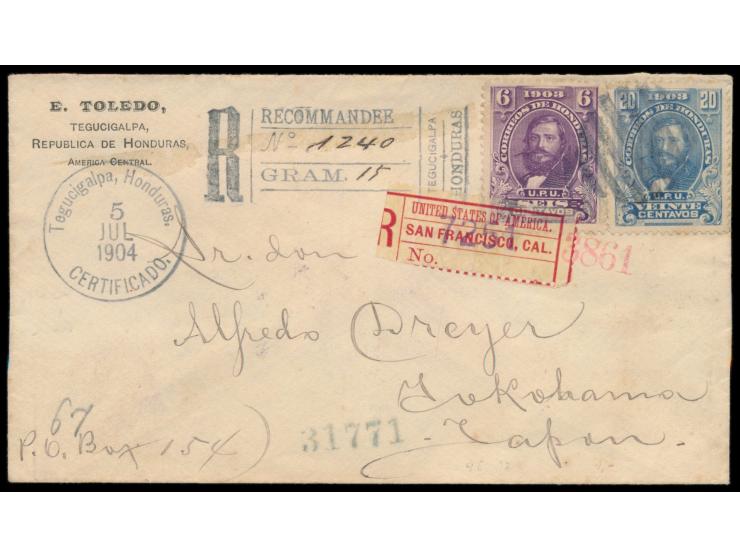 E. TOLEDO,
TEGUCIGALPA,
REPUBLICA DE HONDURAS,
AMERICA CENTRAL.
R
RECOMMANDEE
No 1240
GRAM. 15
TEGUCIGALPA
HONDURAS
1903
6 6
CORREOS DE HONDURAS
U.P.U.
SEIS
CENTAVOS
1903
20 20
CORREOS DE HONDURAS
U.P.U.
VEINTE
CENTAVOS
Tegucigalpa, Honduras.
5
JUL
1904
CERTIFICADO.
R
UNITED STATES OF AMERICA.
SAN FRANCISCO, CAL.
No.
3861
Sr. don
Alfredo Dreyer
Yokohama
Japon.
67
P.O. Box 154)
31771